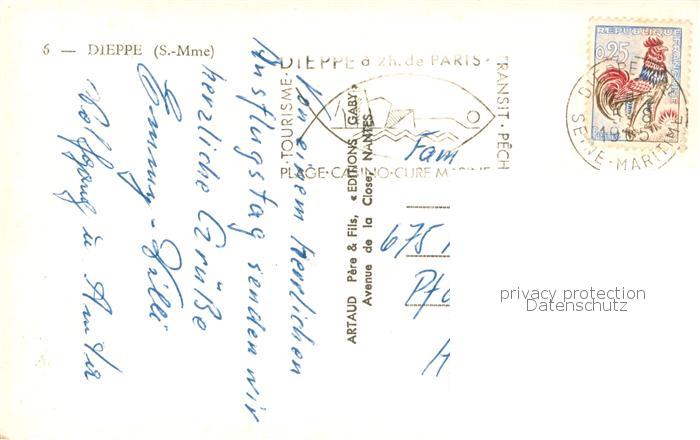 6 — DIEPPE (S.-Mme)
Von einem herrlichen
Ausflugstag senden wir
herzliche Grüße
Emmy - Willi
Wolfgang u. Anita
ARTAUD Père & Fils, « EDITIONS GABY»
Avenue de la Close, NANTES
DIEPPE à 2h. de PARIS·
TRANSIT·PÊCH
·TOURISME·
PLAGE·CASINO·CURE MARINE
REPUBLIQUE FRANÇAISE
0,25
DIEPPE
SEINE-MARITIME
Fam
675
Pf
privacy protection
Datenschutz